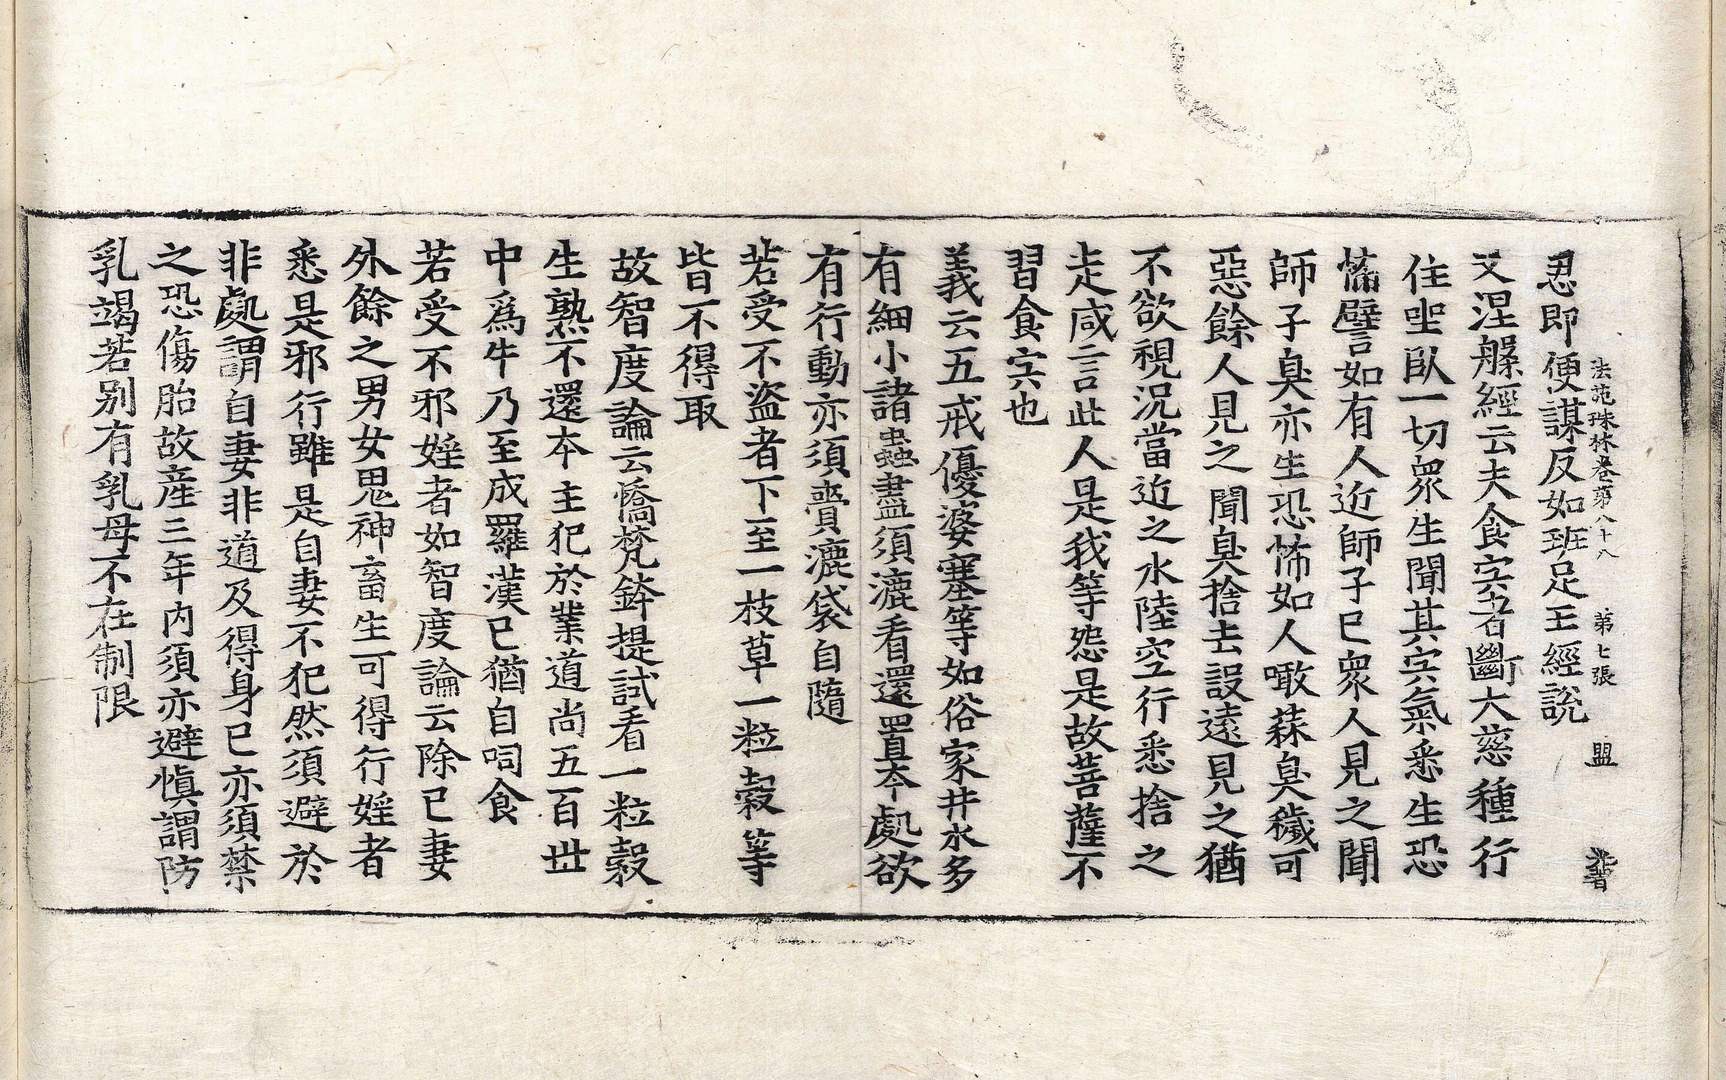 法苑珠林卷第八十八　第七張　盟
忍即便謀反如班足王經說
又涅槃經云夫食宍者斷大慈種行
住坐臥一切衆生聞其宍氣悉生恐
怖譬如有人近師子已衆人見之聞
師子臭亦生恐怖如人噉蒜臭穢可
惡餘人見之聞臭捨去設遠見之猶
不欲視況當近之水陸空行悉捨之
走咸言此人是我等怨是故菩薩不
習食宍也
義云五戒優婆塞等如俗家井水多
有細小諸蟲盡須漉看還置本處欲
有行動亦須賷漉袋自隨
若受不盜者下至一枝草一粒穀等
皆不得取
故智度論云憍梵鉢提試看一粒穀
生熟不還本主犯於業道尚五百世
中爲牛乃至成羅漢已猶自呞食
若受不邪婬者如智度論云除已妻
外餘之男女鬼神畜生可得行婬者
悉是邪行雖是自妻不犯然須避於
非處謂自妻非道及得身已亦須禁
之恐傷胎故産三年内須亦避慎謂防
乳竭若别有乳母不在制限